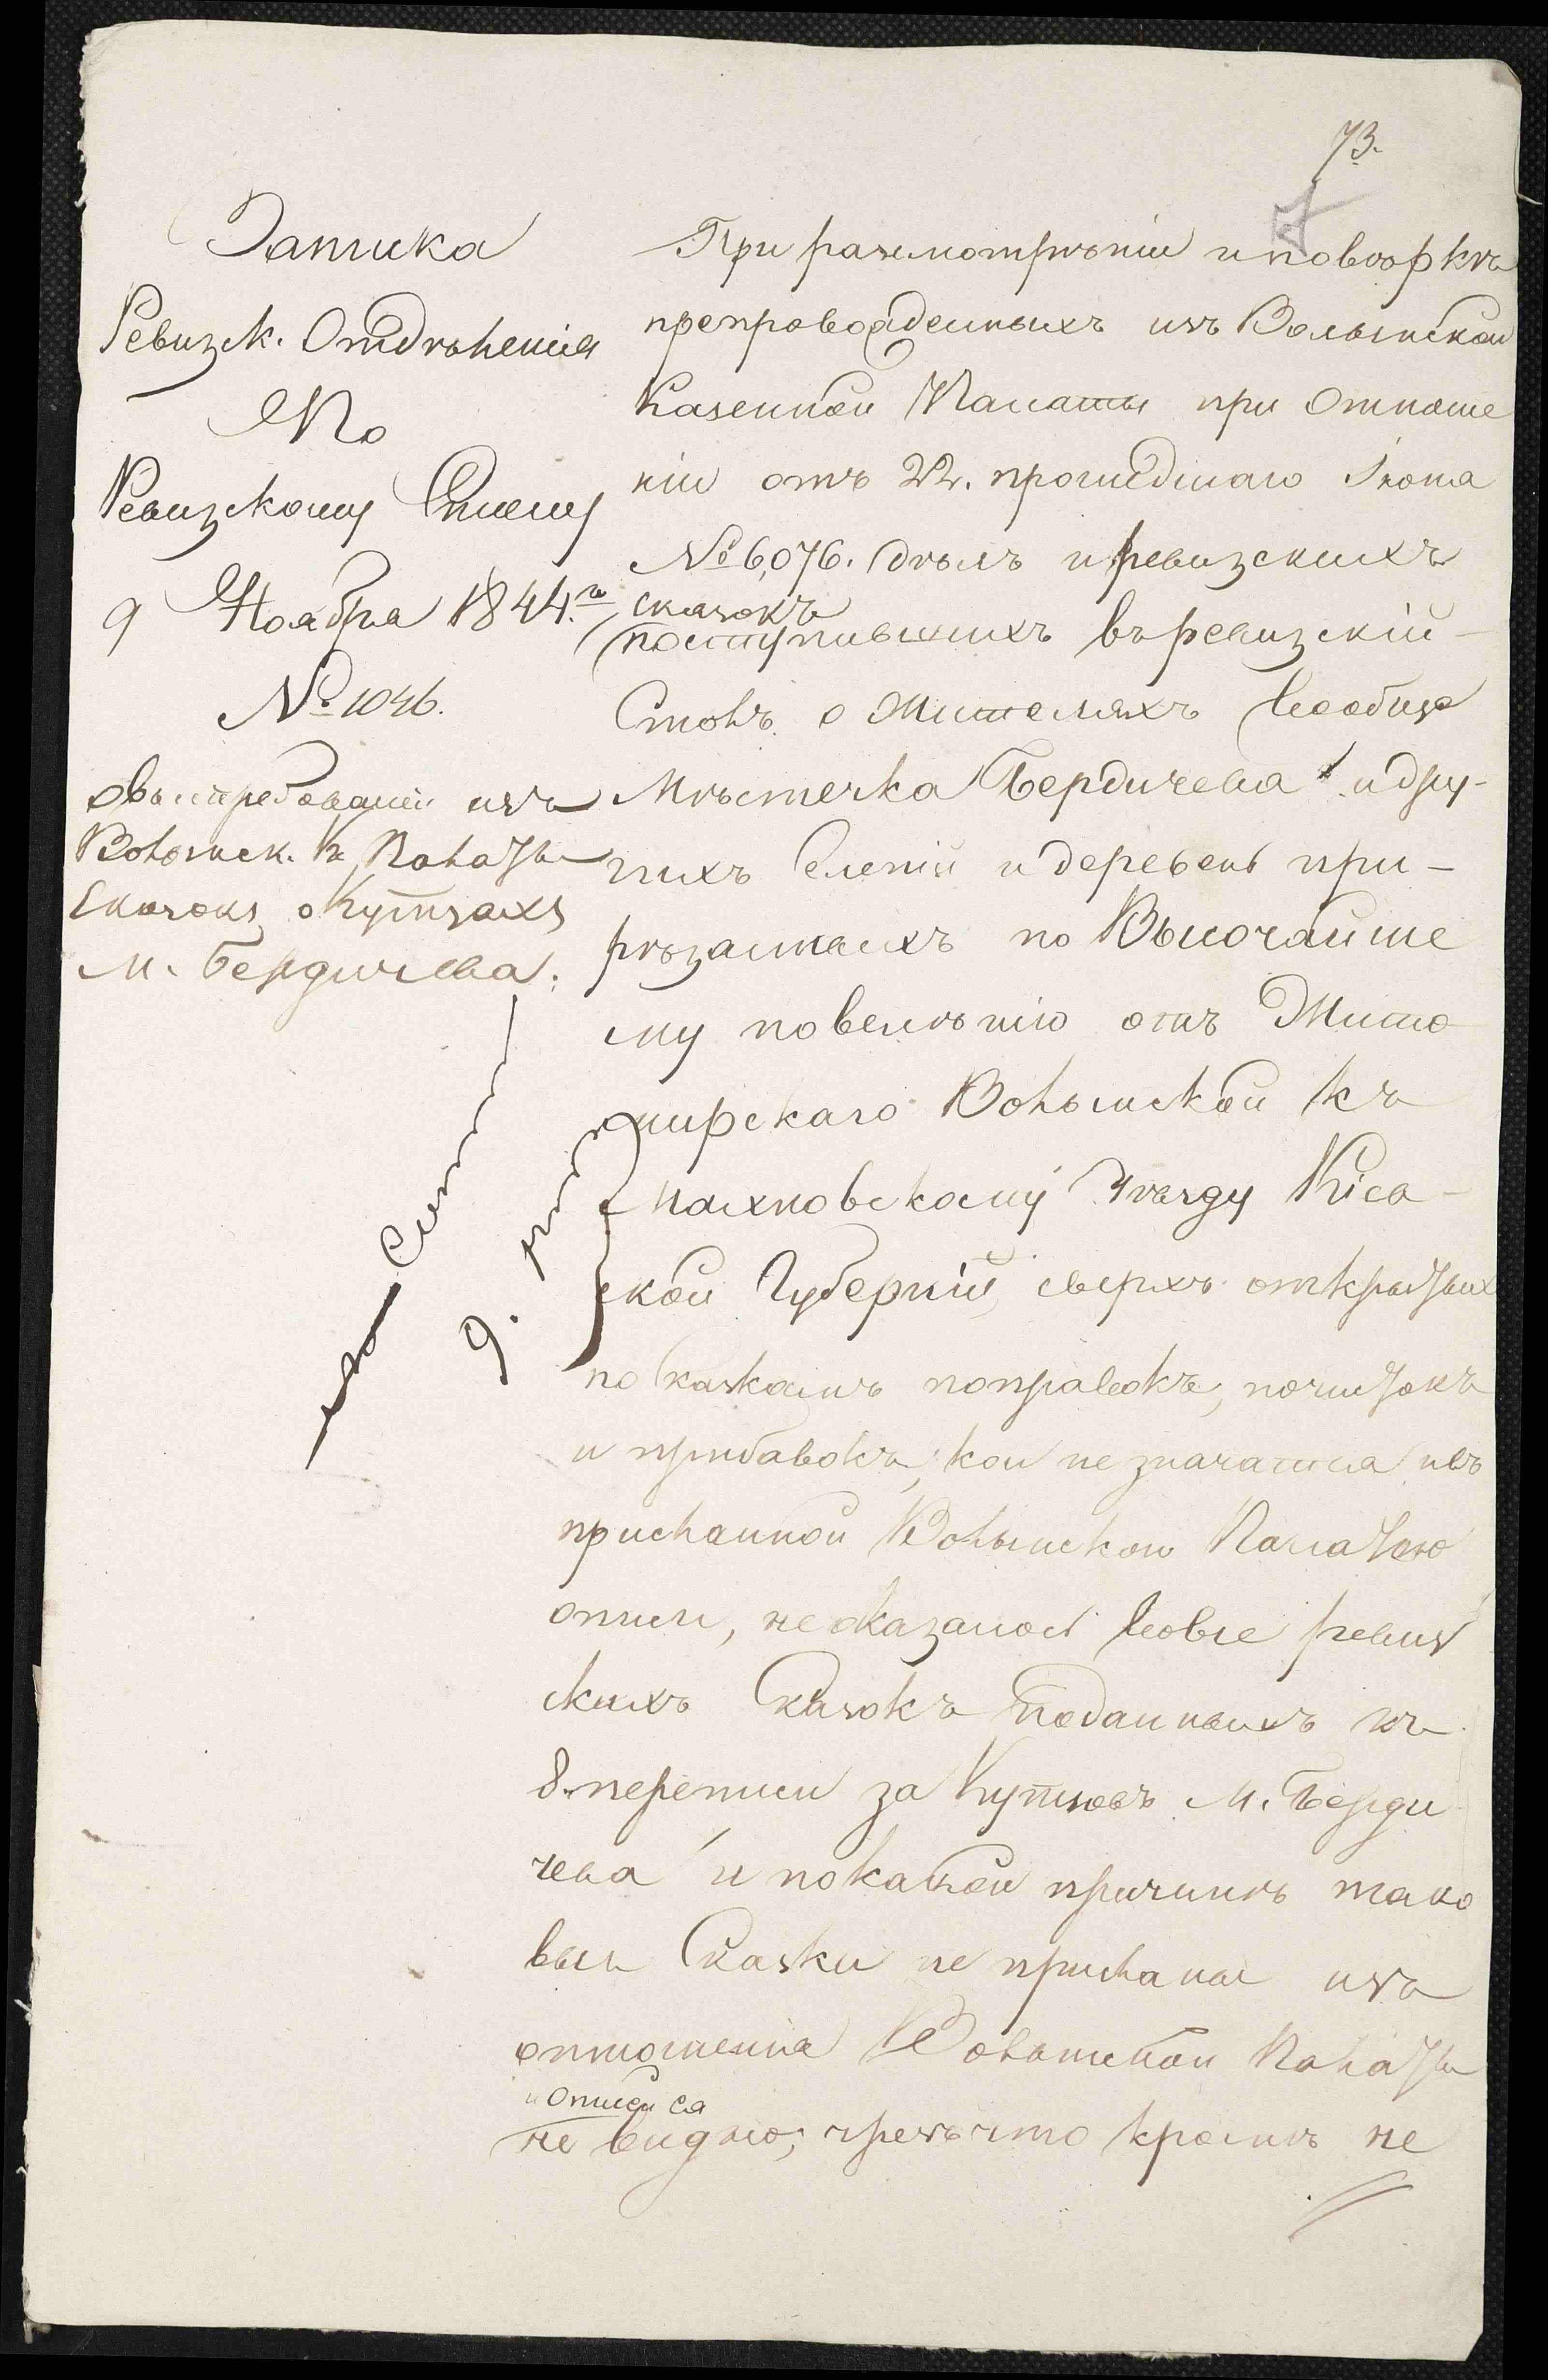 73.
Записка
Ревизск. Отдѣленія
По
Ревизскому Столу
9 Ноября 1844.го
№ 1046.
о вытребованіи изъ
Волынск. К. Палаты
Сказокъ о Купцахъ
м. Бердичева.
При разсмотрѣніи и повѣркѣ
препровожденныхъ изъ Волынской
Казенной Палаты при отноше
ніи отъ 22. прошедшаго Іюня
№ 6,076. дѣлъ и ревизскихъ
сказокъ
поступившихъ въ ревизскій
Столъ о жителяхъ вообще
Мѣстечка Бердичева и дру-
гихъ Селеній и деревень при-
рѣзанныхъ по Высочайше
му повелѣнію отъ Жито
мирскаго Волынской къ
Махновскому Уѣзду Кіев-
ской Губерній, сверхъ открытыхъ
по сказкамъ поправокъ, почистокъ
и прибавокъ, кои не значатся въ
присланной Волынскою Палатою
описи, не оказалось вовсе ревиз
скихъ Сказокъ поданныхъ къ
8. переписи за Купцовъ м. Берди
чева и по какой причинѣ тако
выя Сказки не присланы изъ
отношенія Волынской Палаты
и описи ея
не видно; чрезъ что кромѣ не
9.